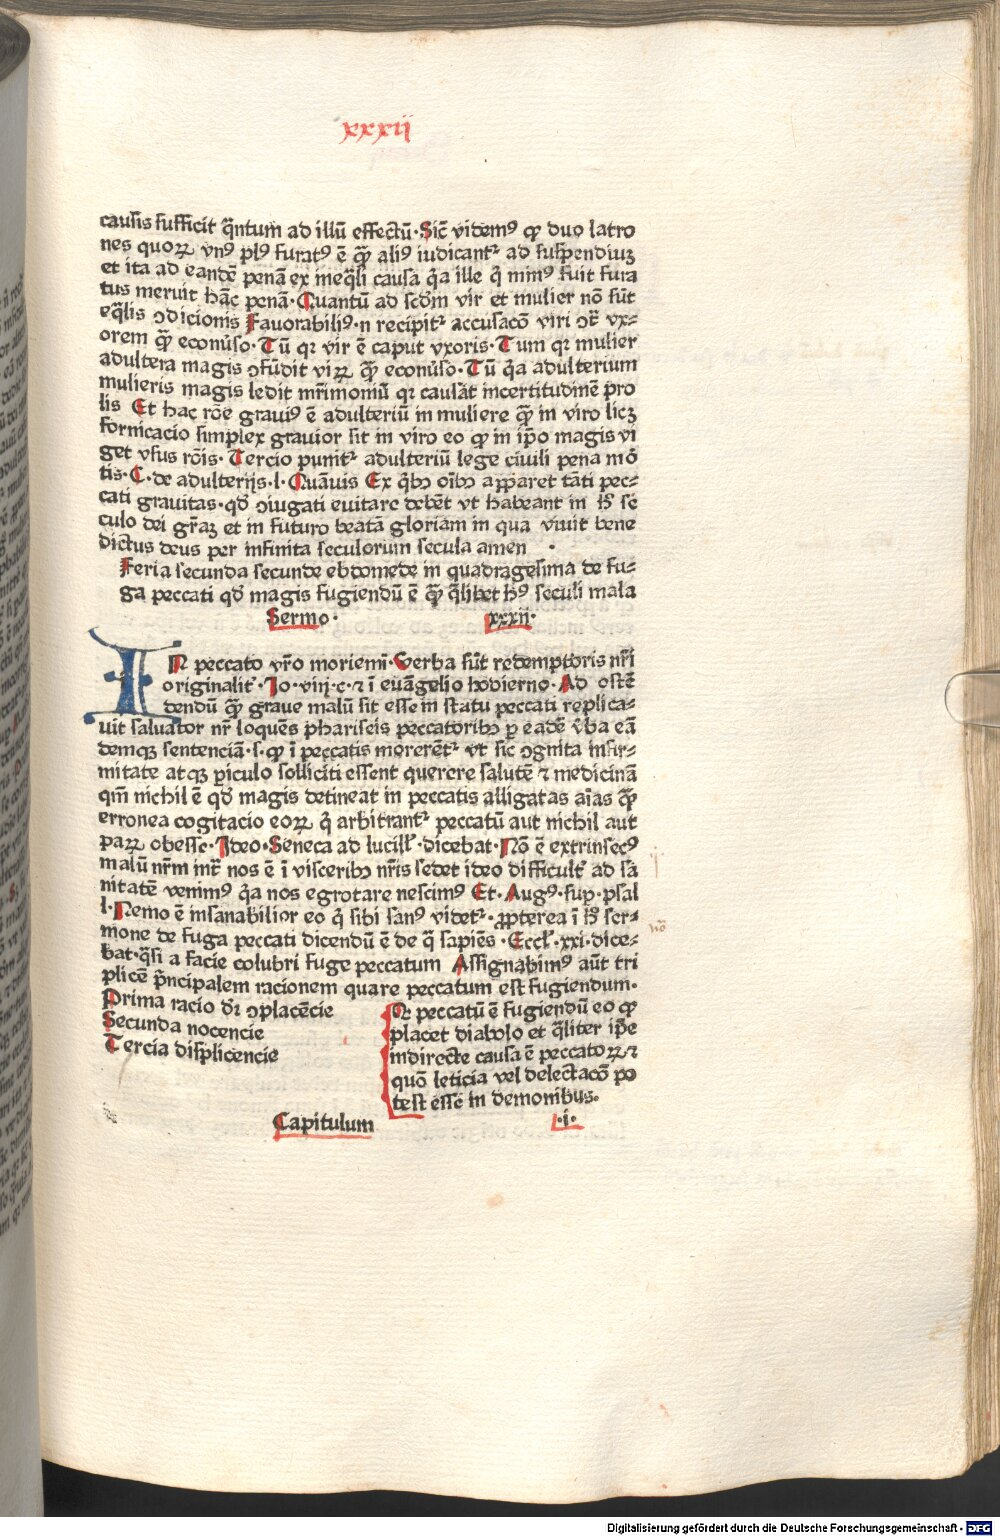 xxxij
causis sufficit q̄ntum ad illū effectū·Sic̄ videmꝰ ꝙ duo latro
nes quoꝝ vnꝰ plꝰ furatꝰ ē qᷓꝫ aliꝰ iudicantᷣ ad suspendiuꝫ
et ita ad eandē penā ex ineq̄li causa q̇a ille q̇ minꝰ fuit fura
tus meruit hāc penā·Quantū ad scd̄m vir et mulier nō sūt
eq̄lis ꝯdicionis Fauorabiliꝰ·n recipitᷣ accusacō viri ꝯtᷓ vx⸗
orem qᷓꝫ econūso·Tū qꝛ vir ē caput vxoris·Tum qꝛ mulier
adultera magis ꝯfūdit viꝝ qᷓꝫ econūso·Tū q̇a adulterium
mulieris magis ledit mr̄imoniū qꝛ causāt incertitudinē pro
lis Et hac rōe grauiꝰ ē adulteriū in muliere qᷓꝫ in viro licꝫ
fornicacio simplex grauior sit in viro eo ꝙ in ip̄o magis vi
get vsus rōis·Tercio punitᷣ adulteriū lege ciuili pena mō
tis·C·de adulterijs·l·Quāuis Ex q̇bꝫ oībꝫ apparet tāti pec⸗
cati grauitas·qd̄ ꝯiugati euitare debēt vt habeant in hͦ se
culo dei gr̄aꝫ et in futuro beatā gloriam in qua viuit bene
dictus deus per infinita seculorum secula amen ·
Feria secunda secunde ebdomede in quadragesima de fu⸗
ga peccati qd̄ magis fugiendū ē qᷓꝫ q̄libet hꝰ seculi mala
Sermo· xxxij·
IN peccato vr̄o moriemī·Verba sūt redemptoris nr̄i
originalit̄·Jo·viij·c·⁊ ī euāgelio hodierno·Ad ostē
dendū qᷓꝫ graue malū sit esse in statu peccati replica⸗
uit saluator nr̄ loquēs phariseis peccatoribꝫ ꝑ eadē v̄ba eā
demqꝫ sentenciā·s·ꝙ ī peccatis morerētᷣ vt sic ꝯgnita infir⸗
mitate atqꝫ ꝑiculo solliciti essent querere salutē ⁊ medicinā
qm̄ nichil ē qd̄ magis detineat in peccatis alligatas aīas qᷓꝫ
erronea cogitacio eoꝝ q̇ arbitrantᷣ peccatū aut nichil aut
paꝝ obesse·Ideo·Seneca ad lucill̄·dicebat·Nō ē extrinsecꝰ
malū nr̄m intᷓ nos ē ī visceribꝫ nr̄is sedet ideo difficult̄ ad sā
nitatē venimꝰ q̇a nos egrotare nescimꝰ Et·Augꝰ·suꝑ·psal
l·Nemo ē insanabilior eo q̇ sibi sanꝰ videtᷣ·ꝓpterea ī hͦ ser⸗
mone de fuga peccati dicendū ē de q̄ sapiēs·Eccl̄·xxi·dice⸗
bat·q̄si a facie colubri fuge peccatum Assignabimꝰ aūt tri
plicē p̄ncipalem racionem quare peccatum est fugiendum·
Prima racio dr̄ ꝯplacēcie
Secunda nocencie
Tercia displicencie
Nō
Qꝛ peccatū ē fugiendū eo ꝙ
placet diabolo et q̄liter ip̄e
indirecte causa ē peccatoꝝ·⁊
quō leticia vel delectacō po
test esse in demonibus·
Capitulum ·i·